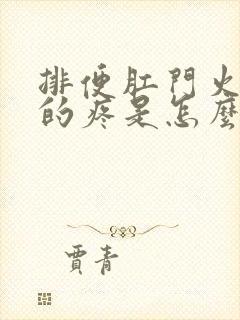 排便肛門火
的疼是怎麼
賈青